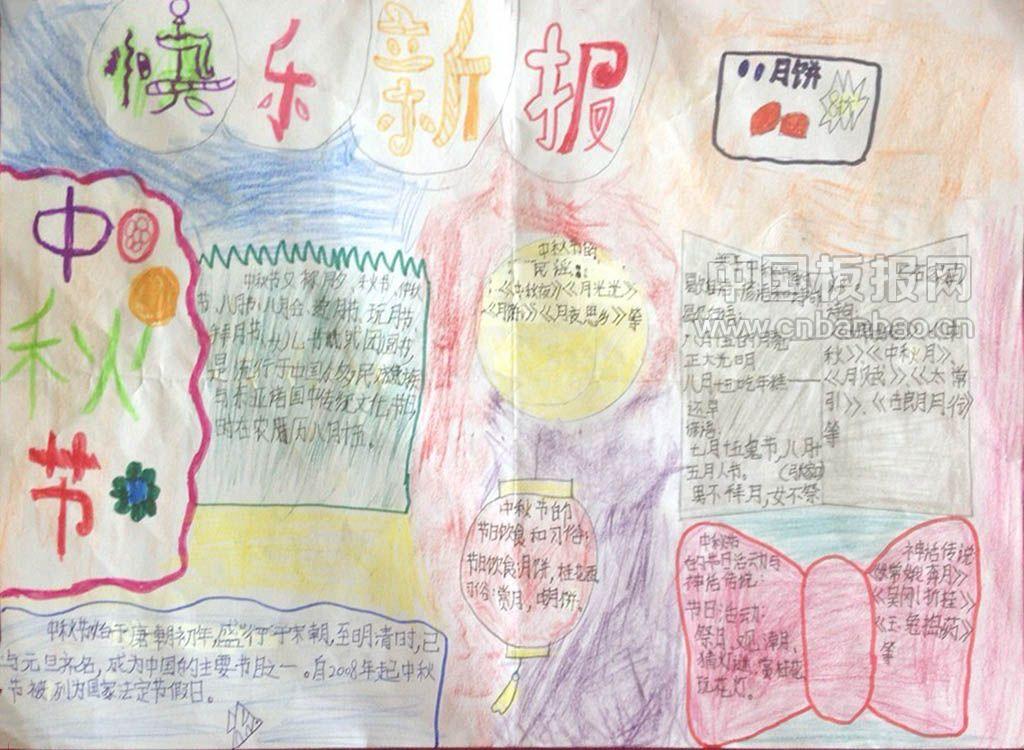 快乐新报
月饼
8折
中
秋
节
中秋节又称月夕、秋节、仲秋
节、八月节、八月会、追月节、玩月节、
拜月节、女儿节或团圆节,
是流行于中国众多民族
与东亚诸国中传统文化节日
时在农历八月十五。
中秋节的
民谣:
:《中秋夜》《月光光》
《月饼》《月夜思乡》等
中国板报网
www.cnbanbao.cn
八月十五的月亮——
正大光明
八月十五吃年糕——
还早
七月十五鬼节,八月十
五月人节。
男不拜月,女不祭
秋》《中秋月》、
引》、《古朗月行》
等
中秋节的
节日饮食和习俗:
节日饮食:月饼,桂花酒
习俗:赏月,吃月饼。
中秋节
的节日活动与
神话传说:
节日活动:
祭月、观潮、
猜灯谜、赏桂花、
玩花灯。
神话传说
《嫦娥奔月》
《吴刚折桂》
《玉兔捣药》
等
中秋节始于唐朝初年,盛行于宋朝,至明清时,已
与元旦齐名,成为中国的主要节日之一。自2008年起中秋
节被列为国家法定节假日。